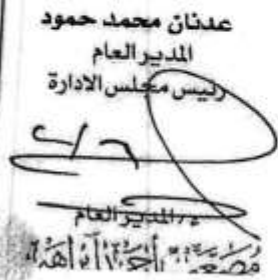 عدنان محمد حمود
المدير العام
رئيس مجلس الادارة
٦/ ٢
د/المدير العام